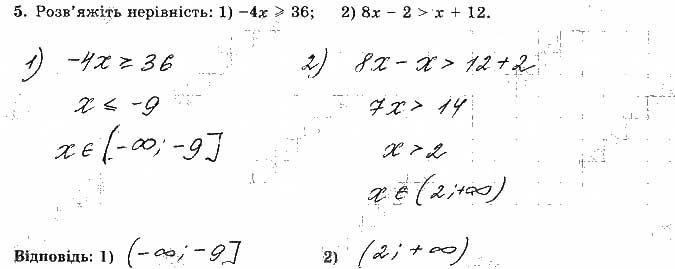 5. Розв'яжіть нерівність: 1) −4x ⩾ 36; 2) 8x − 2 > x + 12.
1) -4x ≥ 36
x ≤ -9
x ∈ [-∞; -9]
2) 8x - x > 12 + 2
7x > 14
x > 2
x ∈ (2; +∞)
Відповідь: 1) (-∞; -9] 2) (2; +∞)